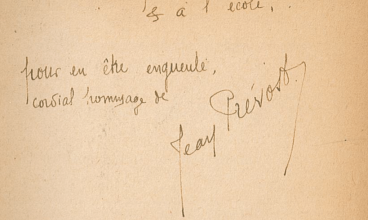 & à l'école,
pour en être engueulé,
cordial hommage de
Jean Prévost.